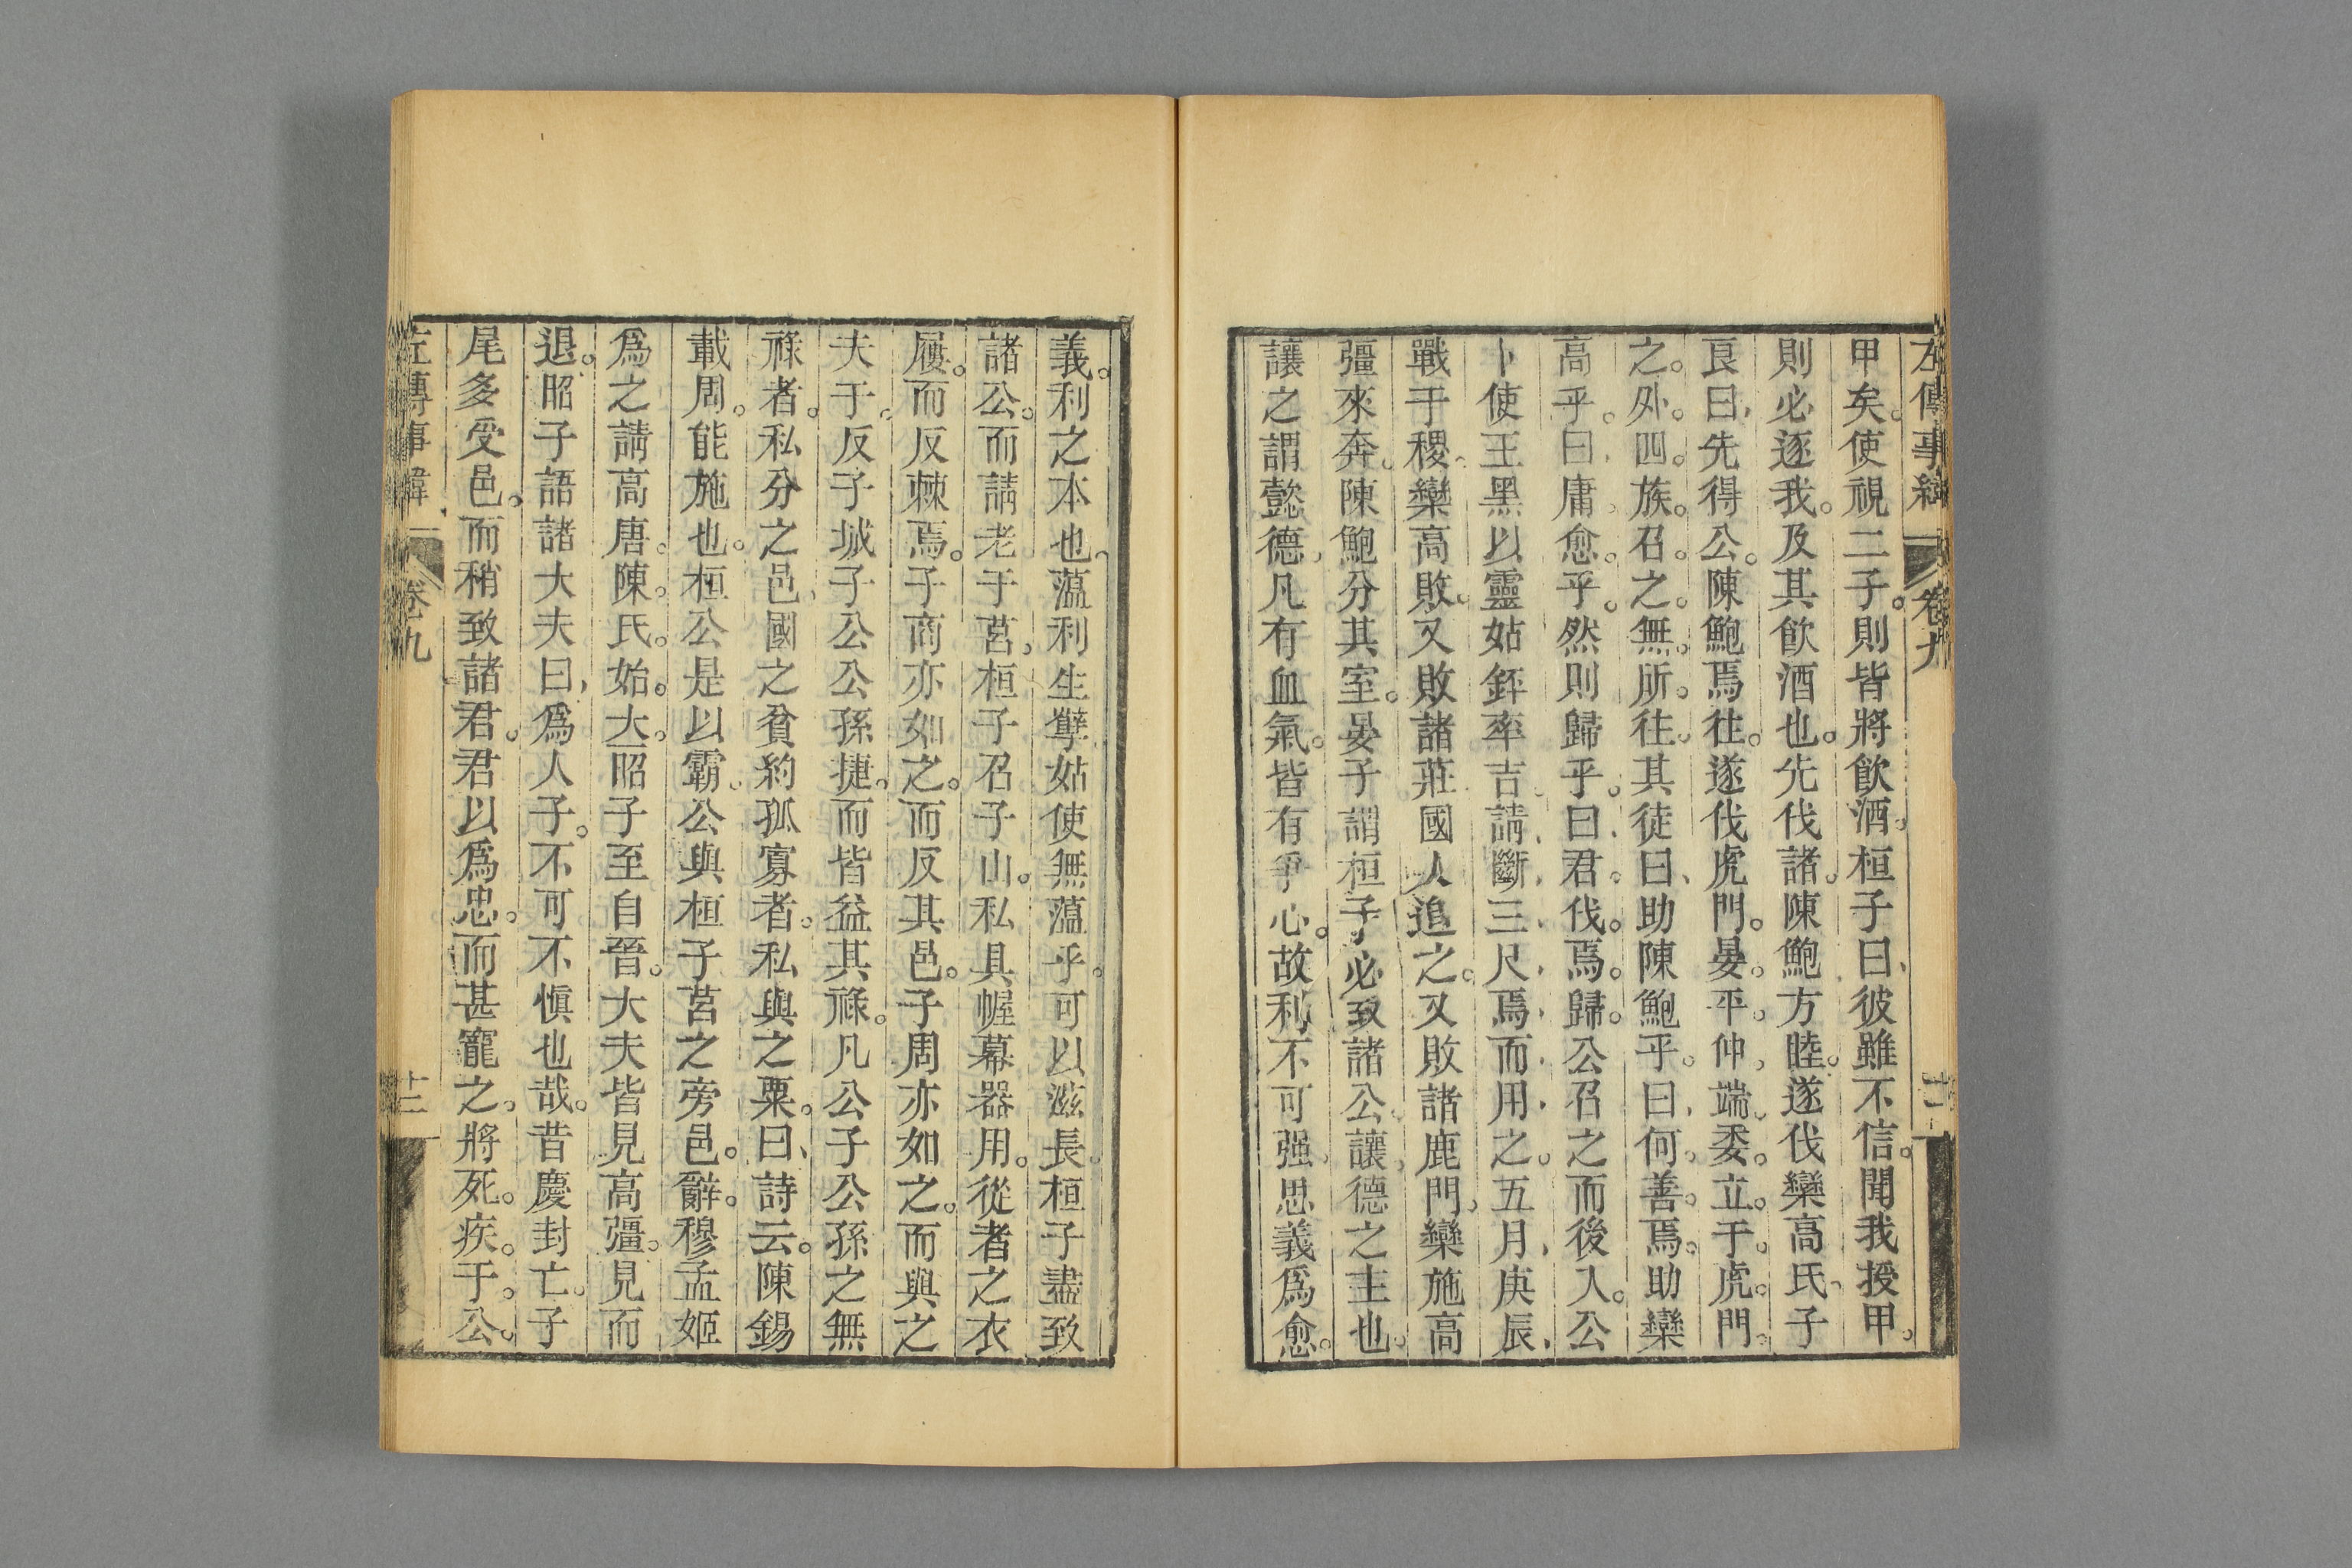 左傳事緯 卷九
甲矣。使視二子。則皆將飮酒。桓子曰、彼雖不信。聞我授甲。
則必逐我。及其飮酒也。先伐諸。陳鮑方睦。遂伐欒高氏、子
良曰、先得公。陳鮑焉往。遂伐虎門。晏。平。仲。端。委。立。于。虎。門。
之。外。四。族。召。之。無。所。往。其徒曰、助陳鮑乎。曰、何。善。焉。助欒
高乎。曰、庸。愈。乎。然則歸乎。曰、君。伐。焉。歸。公召之而後入。公
卜使王黑以靈姑銔率吉。請、斷、三、尺、焉、而、用、之。五月、庚辰、
戰于稷。欒高敗。又敗諸莊國人追之。又敗諸鹿門。欒施高
彊來奔。陳鮑分其室。晏子謂桓子必致諸公。讓、德之主也。
讓之謂懿德、凡有血氣。皆有爭心。故利不可强、思義爲愈。
義。利之本也。薀利生孽姑使無薀乎。可以滋長。桓子盡致
諸公。而請老于莒、桓子召子山。私具幄幕器用。從者之衣
屨。而反棘焉。子商亦如之。而反其邑。子周亦如之。而與之
夫于。反子城子公公孫捷。而皆益其祿。凡公子公孫之無
祿者。私分之邑、國之貧約孤寡者。私與之粟。曰、詩云。陳錫
載周。能施也。桓公是以霸。公與桓子莒之旁邑。辭。穆孟姬
爲之請高唐。陳。氏。始。大。昭子至自晉。大夫皆見高彊。見而
退。昭子語諸大夫曰、爲人子。不可不愼也哉。昔慶封亡。子
尾多受邑。而稍致諸君。君以爲忠。而甚寵之。將死。疾。于。公。
左傳事緯 卷九 十二